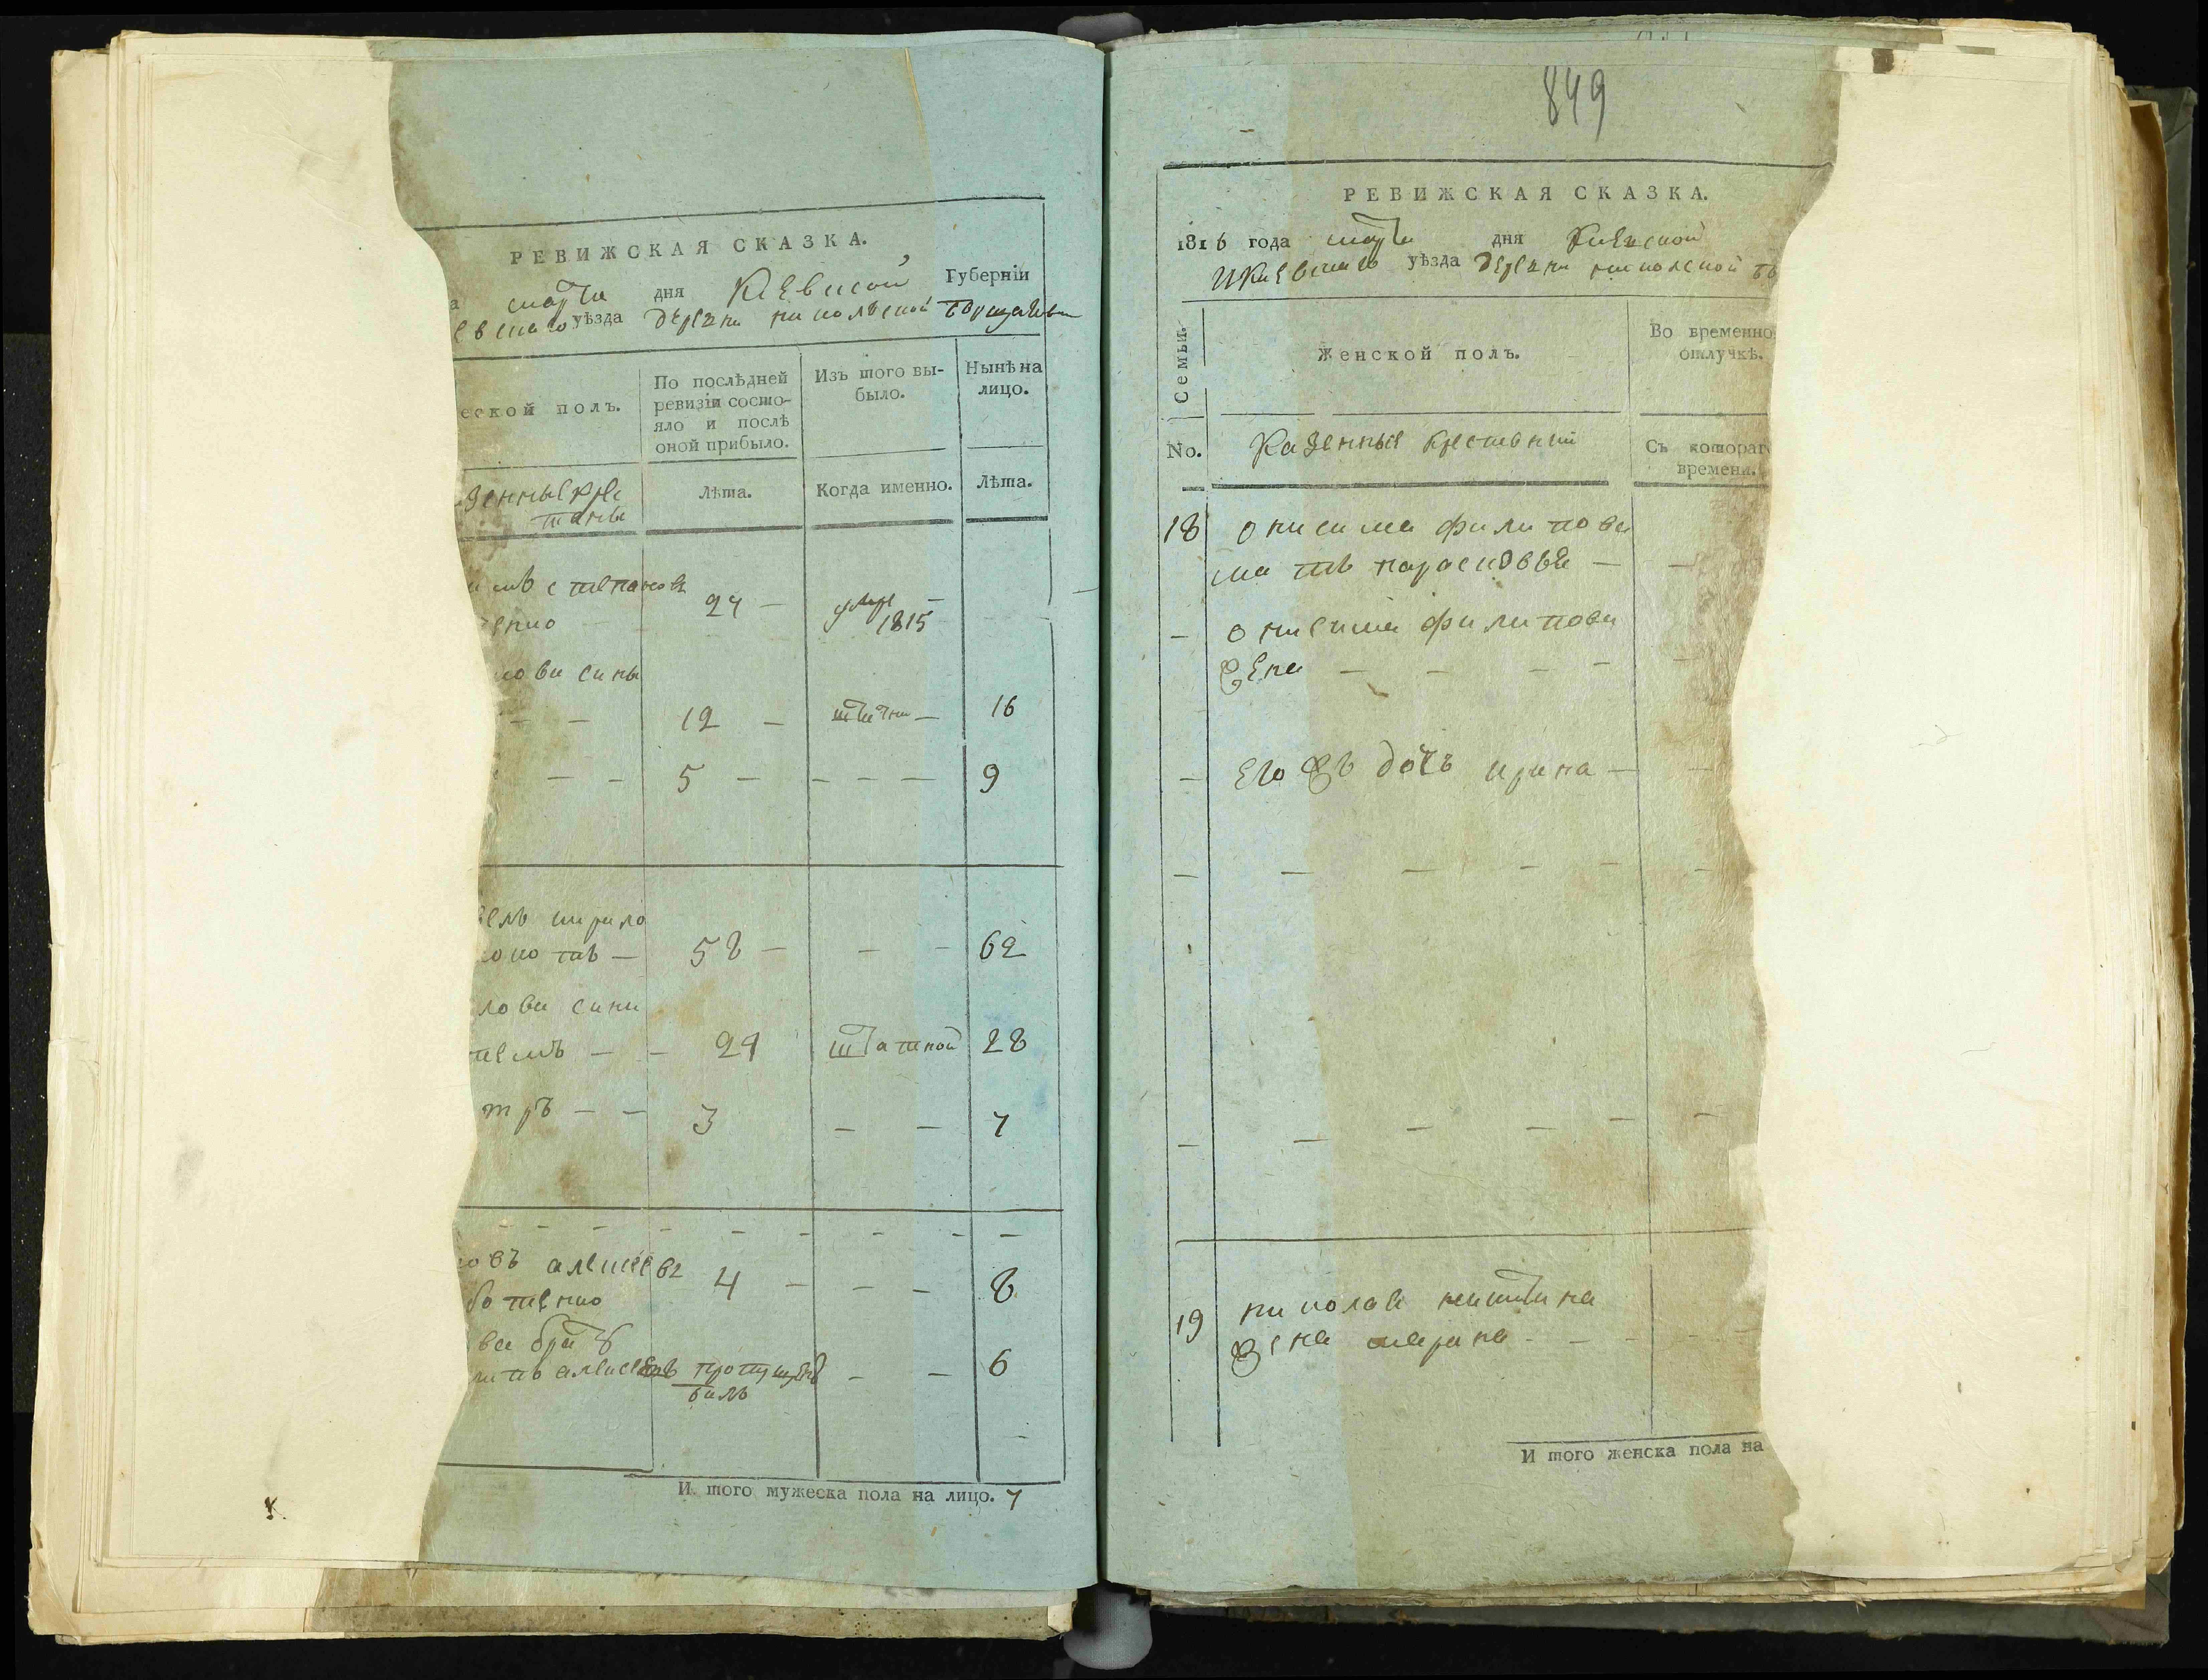 РЕВИЖСКАЯ СКАЗКА.
а марта дня Киевской Губерніи
евскаго уѣзда деревни никольской борщаговки
еской полъ.
По послѣдней ревизіи состояло и послѣ оной прибыло.
Изъ того выбыло.
Нынѣ на лицо.
зенные кре
стяне
Лѣта.
Когда именно.
Лѣта.
степанов
енко 24 — умре 1815
ови сины
— — 12 — — 16
— — 5 — — — — 9
елъ кирило
— 58 — — — 62
лови сини
— — 24 28
тръ — — 3 — — 7
— — — — — — — —
овъ алексеев 4 — — — 8
ботенко
ва брат
алексеевъ пропущенъ — — 6
билъ
И того мужеска пола на лицо. 7
849
РЕВИЖСКАЯ СКАЗКА.
1816 года марта дня Киевской
Икиевскаго уѣзда деревни никольской бо
Семьи.
Женской полъ.
Во временно
отлучкѣ.
No.
Казенные крестяни
Съ котораг
времени.
18 онисима филипова
мать парасковья — —
— онисима филипова
жена — — — — —
— его жъ дочь ирина — —
— — — — —
— — — — — —
19 николая никитина
жена марина - — - - —
И того женска пола на